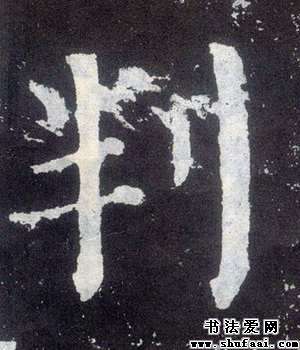 判
书法爱网
www.shufaai.com